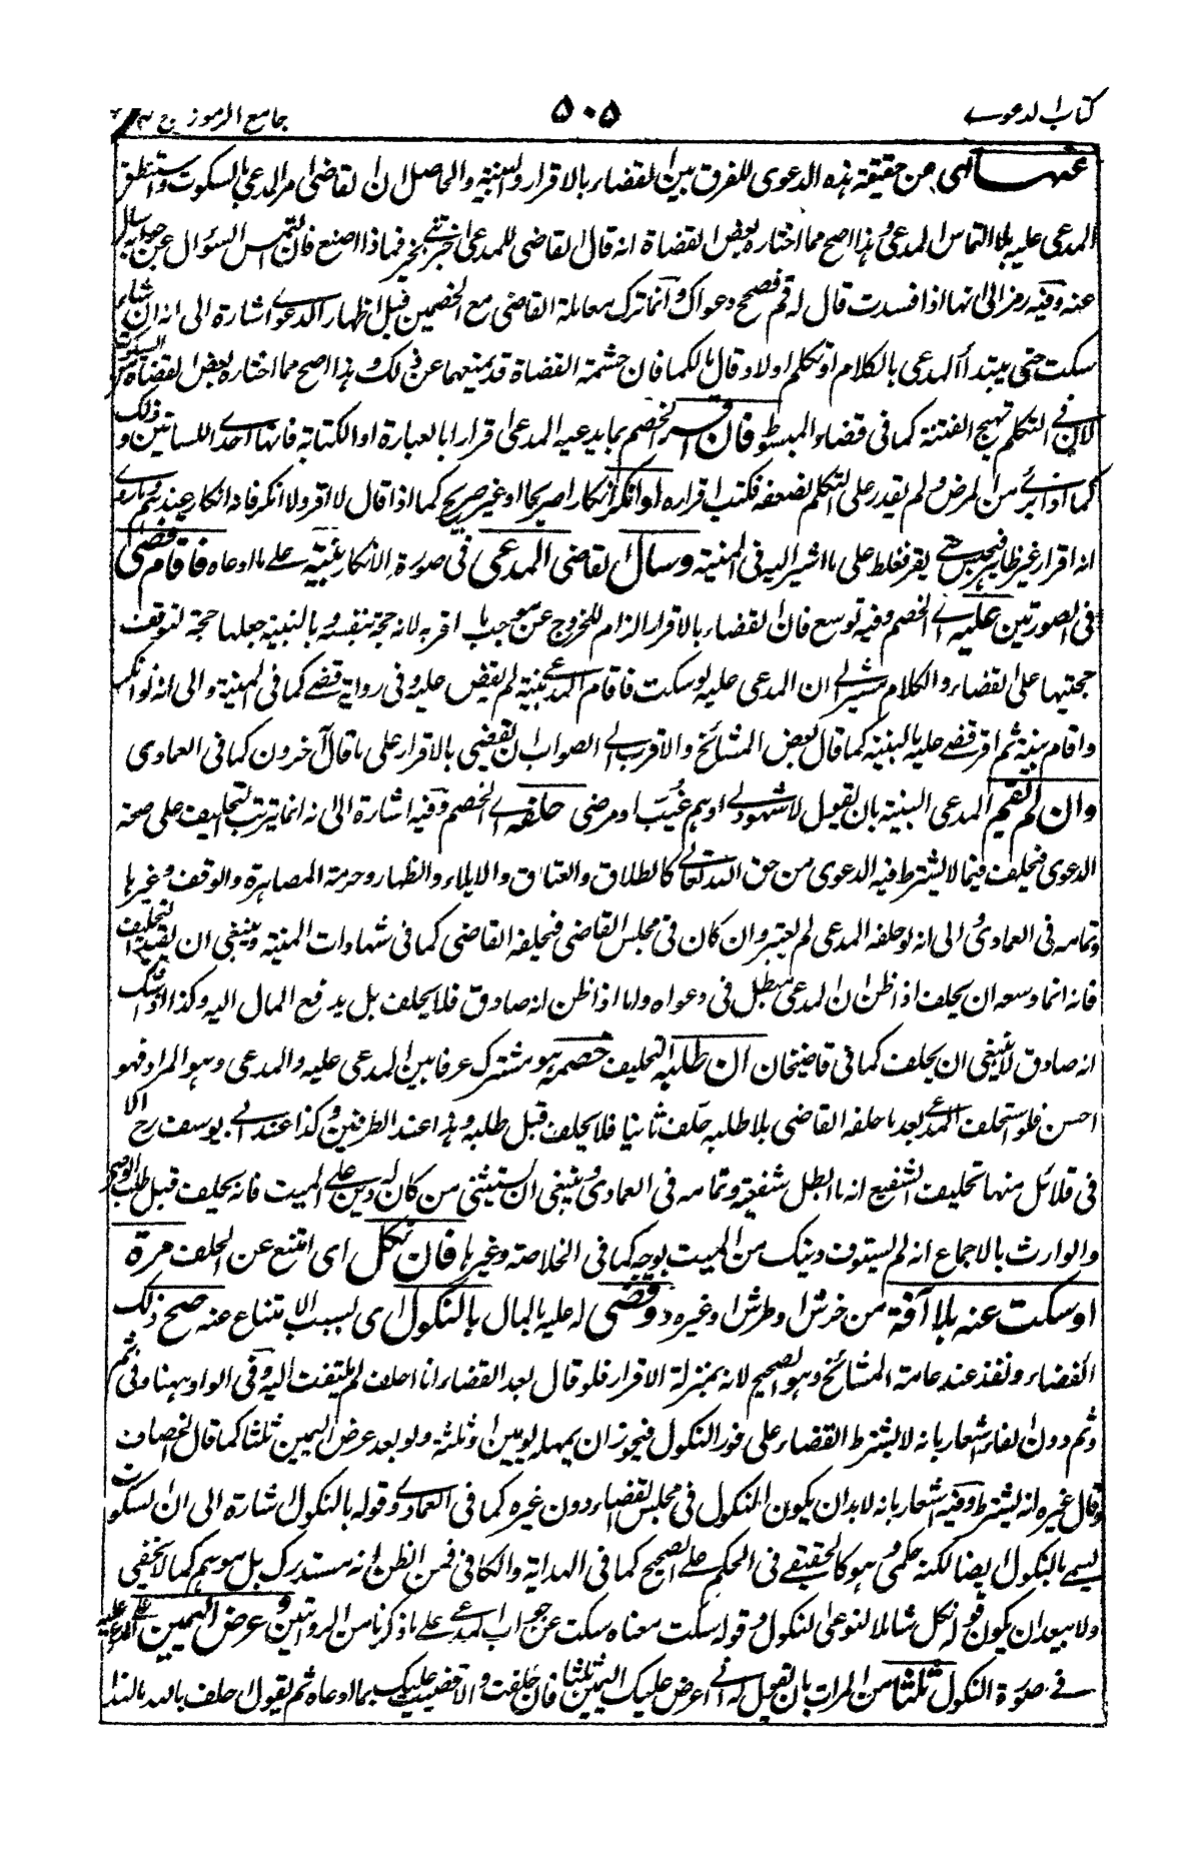 كتاب الدعوى
٥٠٥
جامع الرموز ج
عنها اى من حقيقة هذه الدعوى للفرق بين القضاء بالاقرار والبينة والحاصل ان القاضى امر المدعي بالسكوت واستنطق
المدعى عليه بلا التماس المدعى وهذا اصح مما اختاره بعض القضاة انه قال القاضى للمدعى اخبرتنى بخبر فماذا اصنع فان التمس السؤال عن جوابه سال
عنه وفيه رمز الى انها اذا فسدت قال له قم فصحح دعواك وانما ترك معاملة القاضى مع الخصمين قبل اظهار الدعوى اشارة الى انه ان شاء
سكت حتى يبتدأ المدعى بالكلام او تكلم اولا وقال ما لكما فان حشمة القضاة قد يمنعهما عن ذلك وهذا اصح مما اختاره بعض القضاة من السكوت
لان فى التكلم تهيج الفتنة كما فى قضاء المبسوط فان اقر الخصم بما يدعيه المدعى اقرارا بالعبارة او الكتابة فانها احدى اللسانين وذلك
كما اذا برئ من المرض ولم يقدر على التكلم لضعفه فكتب اقراره او انكر انكارا صريحا او غير صريح كما اذا قال لا اقر ولا انكر فانه انكار عنده
انه اقرار غير ظاهر فيحبس حتى يقر فغلط على ما اشير اليه فى المنية وسال القاضى المدعى فى صورة الانكار بينة على ما ادعاه فاقام قضى
فى الصورتين عليه اى الخصم وفيه توسع فان القضاء بالاقرار الزام للخروج عن موجب ما اقر به لانه حجة بنفسه وبالبينة جعلها حجة لتوقف
حجيتها على القضاء والكلام مشير الى ان المدعى عليه لو سكت فاقام المدعى بينة لم يقض عليه وفى رواية قضى كما فى المنية والى انه لو انكر
واقام بينة ثم اقر قضى عليه بالبينة كما قال بعض المشائخ والاقرب الى الصواب ان يقضى بالاقرار على ما قال آخرون كما فى العمادى
وان لم يقم المدعى البينة بان يقول لا شهود لى او هم غيب او مرضى حلفه اى الخصم وفيه اشارة الى انه انما يترتب التحليف على صحة
الدعوى فيحلف فيما لا يشترط فيه الدعوى من حق الله تعالى كالطلاق والعتاق والايلاء والظهار وحرمة المصاهرة والوقف وغيرها
وتمامه فى العمادى والى انه لو حلفه المدعى لم يعتبر وان كان فى مجلس القاضى فيحلفه القاضى كما فى شهادات المنية وينبغى ان يقيد التحليف
فانه انما وسعه ان يحلف اذا ظن ان المدعى مبطل فى دعواه واما اذا ظن انه صادق فلا يحلف بل يدفع المال اليه وكذا اذا شك
انه صادق لا ينبغى ان يحلف كما فى قاضيخان ان طلبه التحليف خصمه هو مشترك عرفا بين المدعى عليه والمدعى وهو المراد فهو
احسن فلو استحلف المدعى بعد ما حلفه القاضى بلا طلبه حلف ثانيا فلا يحلف قبل طلبه وهذا عند الطرفين وكذا عند ابى يوسف رح الا
فى قلائل منها تحليف الشفيع انه ما ابطل شفعته وتمامه فى العمادى وينبغى ان يستثنى من كان له دين على الميت فانه يحلف قبل طلب الوصى
والوارث بالاجماع انه لم يستوف دينك من الميت بوجه كما فى الخلاصة وغيرها فان نكل اى امتنع عن الحلف مرة
او سكت عنه بلا آفة من خرش او طرش او غيره وقضى له عليه بالمال بالنكول اى بسبب الامتناع عنه صح ذلك
القضاء ونفذ عند عامة المشائخ وهو الصحيح لانه بمنزلة الاقرار فلو قال بعد القضاء انا احلف لم يلتفت اليه وفى الواو ههنا وفى ثم
وثم دون الفاء اشعار بانه لا يشترط القضاء على فور النكول فيجوز ان يمهله يومين او ثلثة ولو بعد عرض اليمين ثلثا كما قال الخصاف
وقال غيره انه يشترط وفيه اشعار بانه لا بد ان يكون النكول فى مجلس القضاء دون غيره كما فى العمادى وقوله بالنكول اشارة الى ان السكوت
يسمى بالنكول ايضا لكنه حكمى وهو كالحقيقى فى الحكم على الصحيح كما فى الهداية والكافى فمن الظن انه مستدرك بل موهم كما لا يخفى
ولا يبعد ان يكون قوله نكل شاملا لنوعى النكول وقوله سكت معناه سكت عن جواب المدعى على ما ذكرنا من الروايتين وعرض اليمين على المدعى عليه
فى صورة النكول ثلثا من المرات بان يقول له انى اعرض عليك اليمين ثلثا فان حلفت والا قضيت عليك بما ادعاه ثم يقول احلف بالله ما لهذا